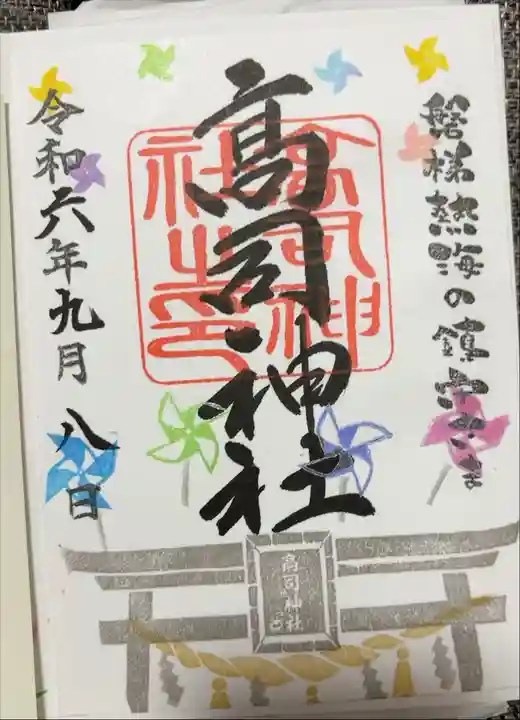 磐梯熱海の鎮守さま
髙司神社
高司神社之印
令和六年九月八日
高司神社